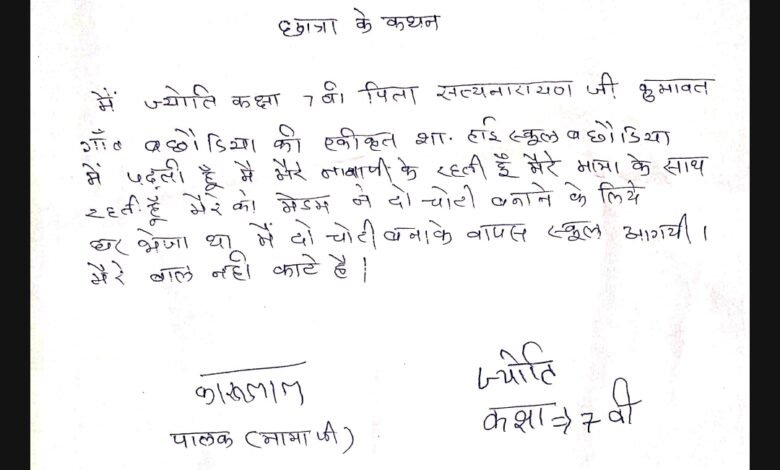 छात्रा के कथन
मैं ज्योति कक्षा 7 वी पिता सत्यनारायण जी कुमावत
गाँव बछौडिया की एकीकृत शा. हाई स्कूल बछौडिया
में पढ़ती हूँ मै मैरे नानाजी के रहती हूँ मैरे माता के साथ
रहती हूँ मैरे को मेडम ने दो चोटी बनाने के लिये
घर भेजा था मैं दो चोटी बनाके वापस स्कूल आगयी।
मैरे बाल नही काटे है।
कारूलाल
पालक (मामा जी)
ज्योति
कक्षा => 7 वी